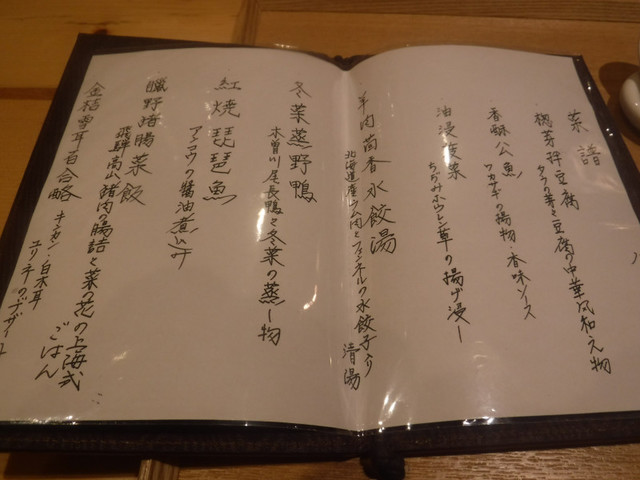 菜譜
楤芽拌豆腐
タラの芽と豆腐の中華風和え物
香酥公魚
ワカサギの揚物・香味ソース
油浸菠菜
ちぢみホウレン草の揚げ浸し
羊肉茴香水餃湯
北海道産ラム肉とフェンネルの水餃子入り清湯
冬菜蒸野鴨
木曽川尾長鴨と冬菜の蒸し物
紅焼琵琶魚
アンコウの醤油煮込み
臘野猪腸菜飯
飛騨高山猪肉の腸詰と菜の花の上海式ごはん
金桔雪耳百合
キンカン・白木耳
ユリネのデザート